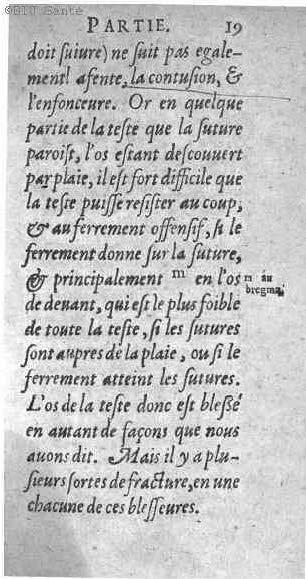 ©BIU Santé
PARTIE. 19
doit ſuiure) ne ſuit pas egale-
ment afente, la contuſion, &
l'enfonceure. Or en quelque
partie de la teſte que la ſuture
paroiſt, l'os eſtant deſcouuert
par plaie, il eſt fort difficile que
la teſte puiſſe reſiſter au coup,
& au ferrement offenſif, ſi le
ferrement donne ſur la ſuture,
& principalement m en l'os
m au
bregma.
de deuant, qui eſt le plus foible
de toute la teſte, ſi les ſutures
ſont aupres de la plaie, ou ſi le
ferrement atteint les ſutures.
L'os de la teſte donc eſt bleßé
en autant de façons que nous
auons dit. Mais il y a plu-
ſieurs ſortes de fracture, en une
chacune de ces bleſſeures.